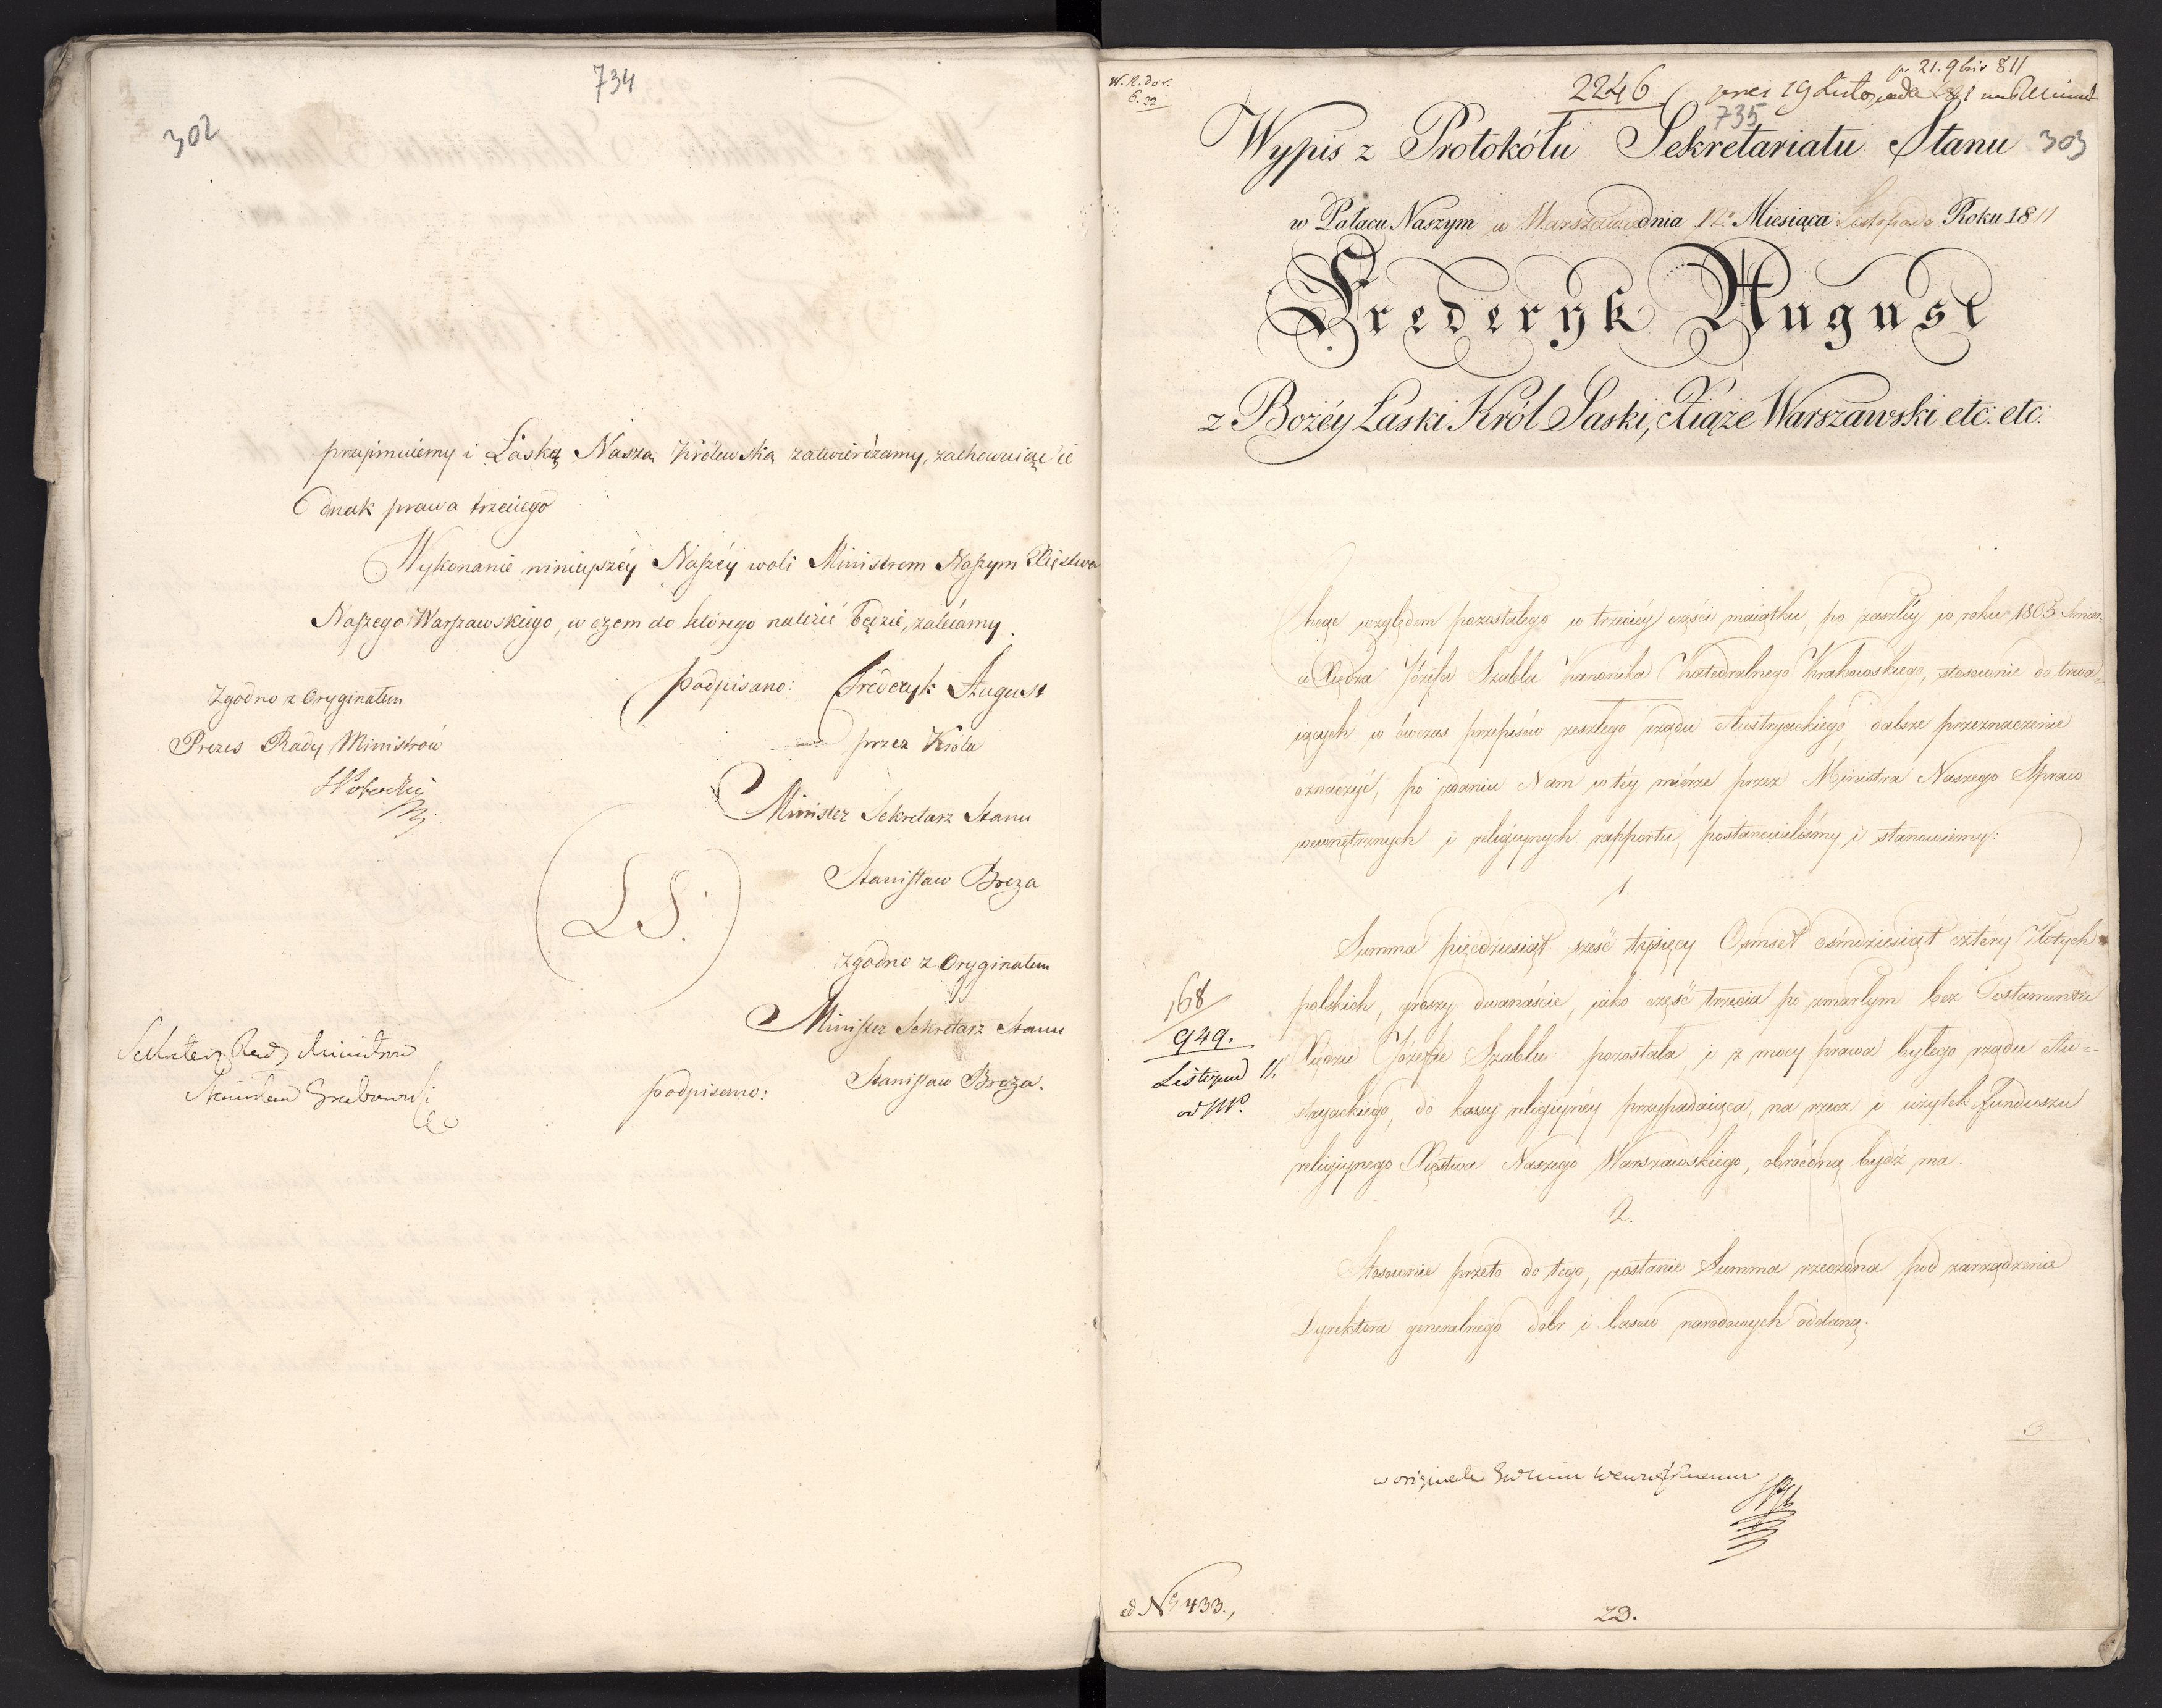 734
302
przyjmuiemy i Łaską Naszą Królewską zatwierdzamy, zachowuiąc ie
dnak prawa trzeciego
Wykonanie ninieyszéy Naszéy woli Ministrom Naszym Xięstwa
Naszego Warszawskiego, w czem do którego należeć będzie, zalecamy.
Zgodno z Oryginałem
Prezes Rady Ministrów
podpisano: Frederyk August
przez Króla
Minister Sekretarz Stanu
Stanisław Breza
LS.
Zgodno z Oryginałem
Minister Sekretarz Stanu
podpisano: Stanisław Breza.
Sekretarz Rady Ministrów
Stanisław Grabowski
W. R. d o r.
6.
2246
pr 21. 9bris 811
19 Listopada
735
303
Wypis z Protokółu Sekretariatu Stanu
w Pałacu Naszym w Warszawie dnia 12o Miesiąca Listopada Roku 1811
Frederyk August
z Bożéy Łaski Król Saski, Xiąże Warszawski etc: etc:
Chcąc względem pozostałego w trzeciéy części maiątku, po zaszłéy w roku 1805 śmier
ci Xiędza Józefa Szabla Kanonika Katedralnego Krakowskiego, stosownie do trwa=
iących w ówczas przepisów zeszłego rządu Austryackiego, dalsze przeznaczenie
oznaczyć, po zdaniu Nam w téy mierze przez Ministra Naszego Spraw
wewnętrznych i religiynych rapportu, postanowiliśmy i stanowiemy:
1.
Summa pięćdziesiąt sześć tysięcy Osmset ośmdziesiąt cztéry Złotych
polskich, groszy dwanaście, iako część trzecia po zmarłym bez Testamentu
Xiędzu Józefie Szablu pozostała, i z mocy prawa byłego rządu Au=
stryackiego, do kassy religiynéy przypadaiąca, na rzecz i użytek funduszu
religiynego Xięstwa Naszego Warszawskiego, obróconą bydź ma.
168
949.
Listopad 11.
od
2.
Stosownie przeto do tego, zostanie Summa rzeczona pod zarządzenie
Dyrektora generalnego dóbr i lasów narodowych oddaną.
ad No 433.,
23.